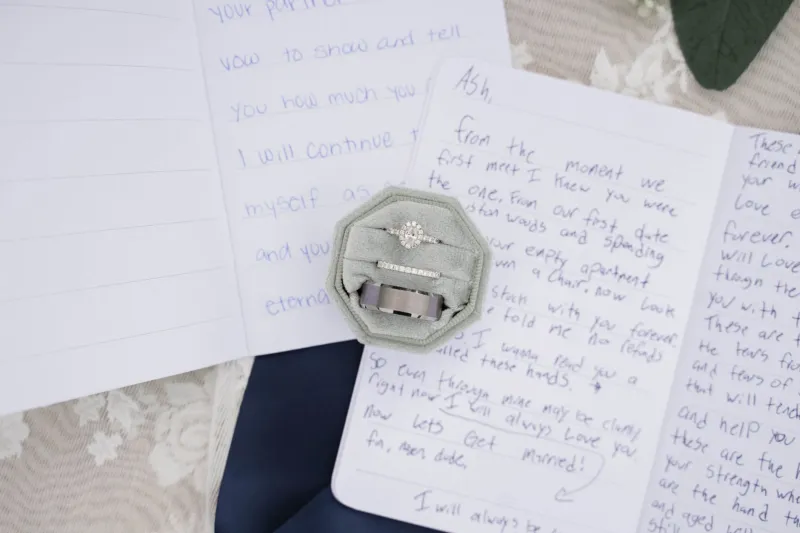 your partner
vow to show and tell
you how much you
I will continue
myself as
and you
eterna
Ash,
from the moment we
first meet I knew you were
the one. From our first date
woods and spending
your empty apartment
a chair, now look
stuck with you forever
told me no refunds
I wanna read you a
called these hands.
So even through mine may be clamy
right now I will always love you
now lets Get married!
I will always be
These
friend
your
Love
forever.
will Love
through the
you with
These are
the tears
and tears of
that will
and help you
these are the
your strength
are the hand
and aged
still